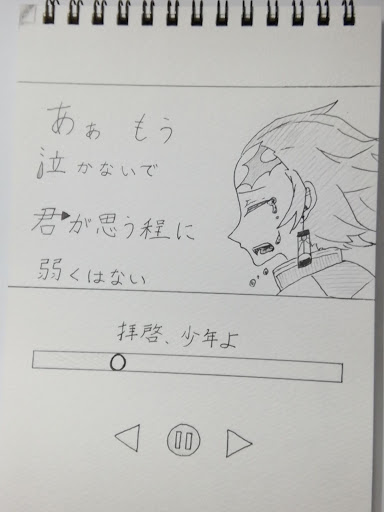 あぁ もう
泣かないで
君が思う程に
弱くはない
拝啓、少年よ